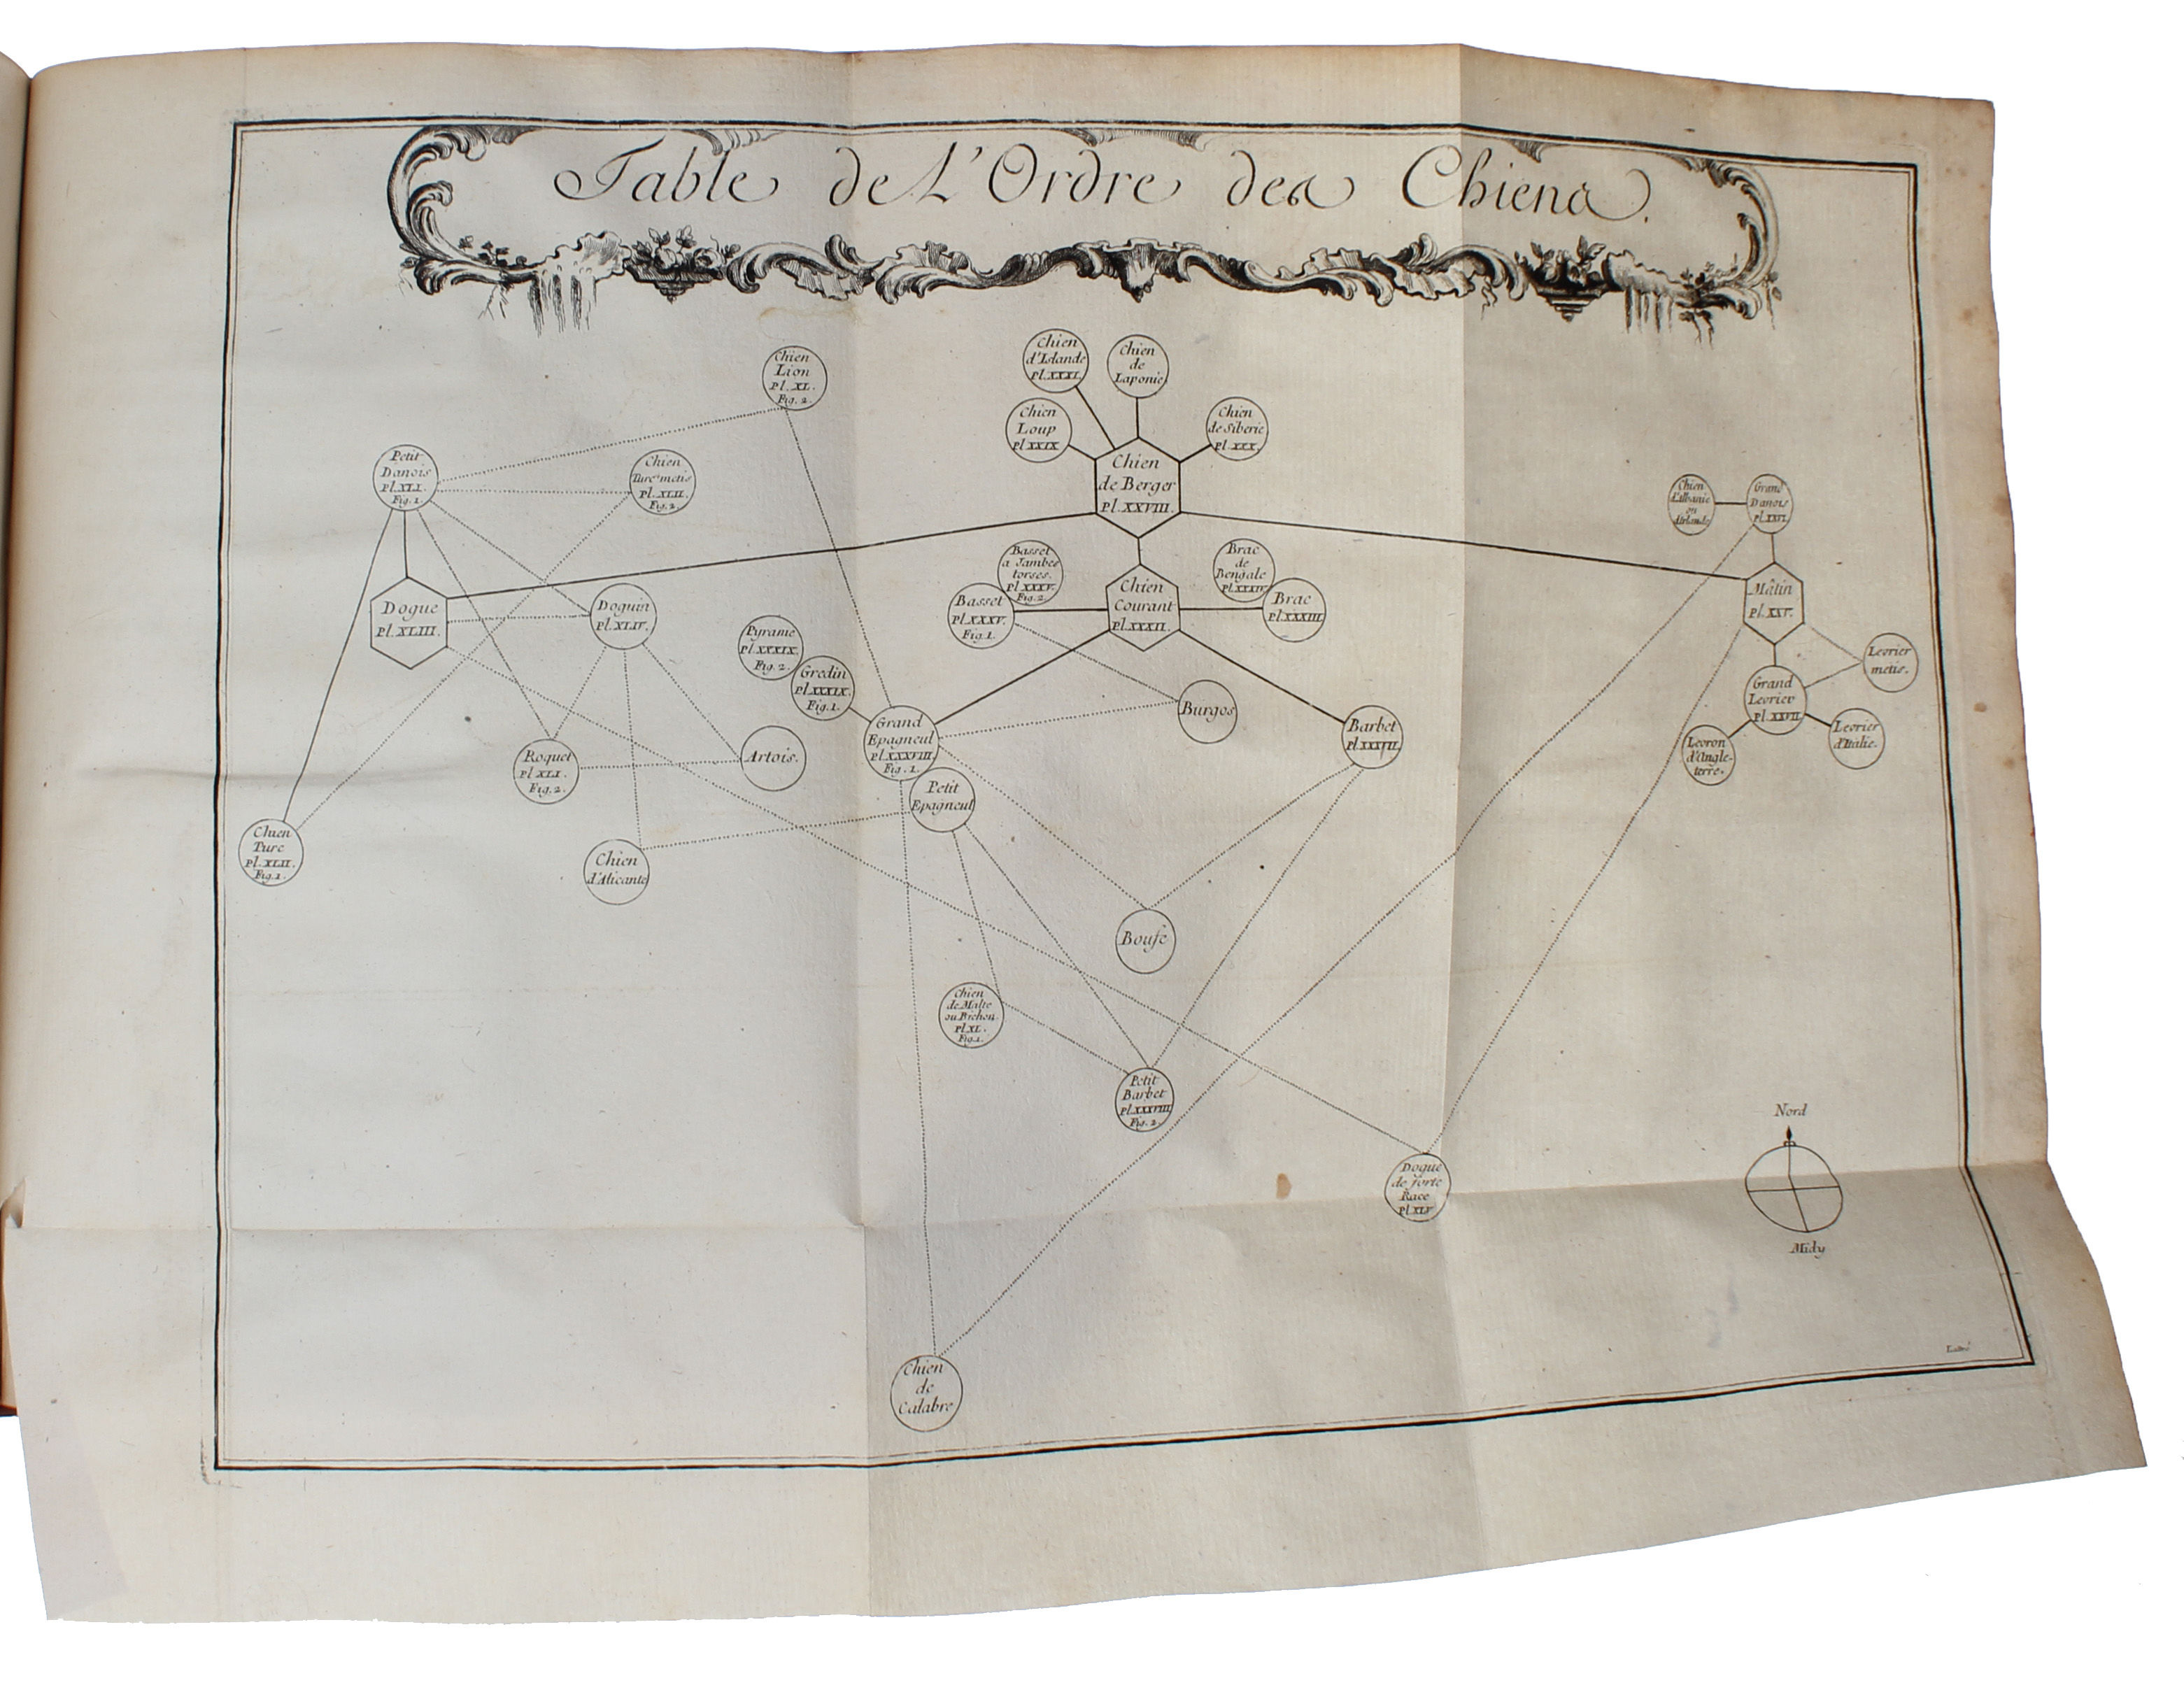 Table de L'Ordre des Chiens.
Chien
Lion
Pl. XL.
Fig. 2.
Chien
d'Islande
Pl. XXXI.
Chien
de
Laponie
Chien
Loup
Pl. XXIX
Chien
de Siberie
Pl. XXX.
Chien
de Berger
Pl. XXVIII.
Petit
Danois
Pl. XLI.
Fig. 1.
Chien
Turc metis
Pl. XLII.
Fig. 2.
Chien
d'Albanie
ou
d'Irlande
Grand
Danois
Pl. XXVI.
Basset
a Jambes
torses.
Pl. XXXV.
Fig. 2.
Brac
de
Bengale
Pl. XXXIV
Dogue
Pl. XLIII.
Doguin
Pl. XLIV.
Basset
Pl. XXXV.
Fig. 1.
Chien
Courant
Pl. XXXII.
Brac
Pl. XXXIII.
Mâtin
Pl. XXV.
Pyrame
Pl. XXXIX.
Fig. 2.
Gredin
Pl. XXXIX.
Fig. 1.
Levrier
metis.
Grand
Levrier
Pl. XXVII
Grand
Epagneul
Pl. XXXVIII.
Fig. 1.
Burgos
Barbet
Pl. XXXVII.
Levron
d'Angle-
terre.
Levrier
d'Italie.
Roquet
Pl. XLI.
Fig. 2.
Artois.
Petit
Epagneul
Chien
Turc
Pl. XLII.
Fig. 1.
Chien
d'Alicante
Boufe
Chien
de Malte
ou Bichon.
Pl. XL.
Fig. 1.
Petit
Barbet
Pl. XXXVIII
Fig. 2.
Dogue
de forte
Race
Pl. XLV
Nord
Midy
Chien
de
Calabre